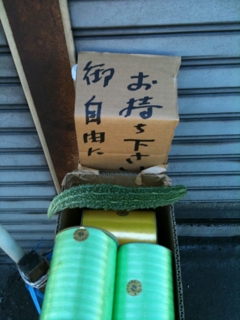 御自由に
お持ち下さい